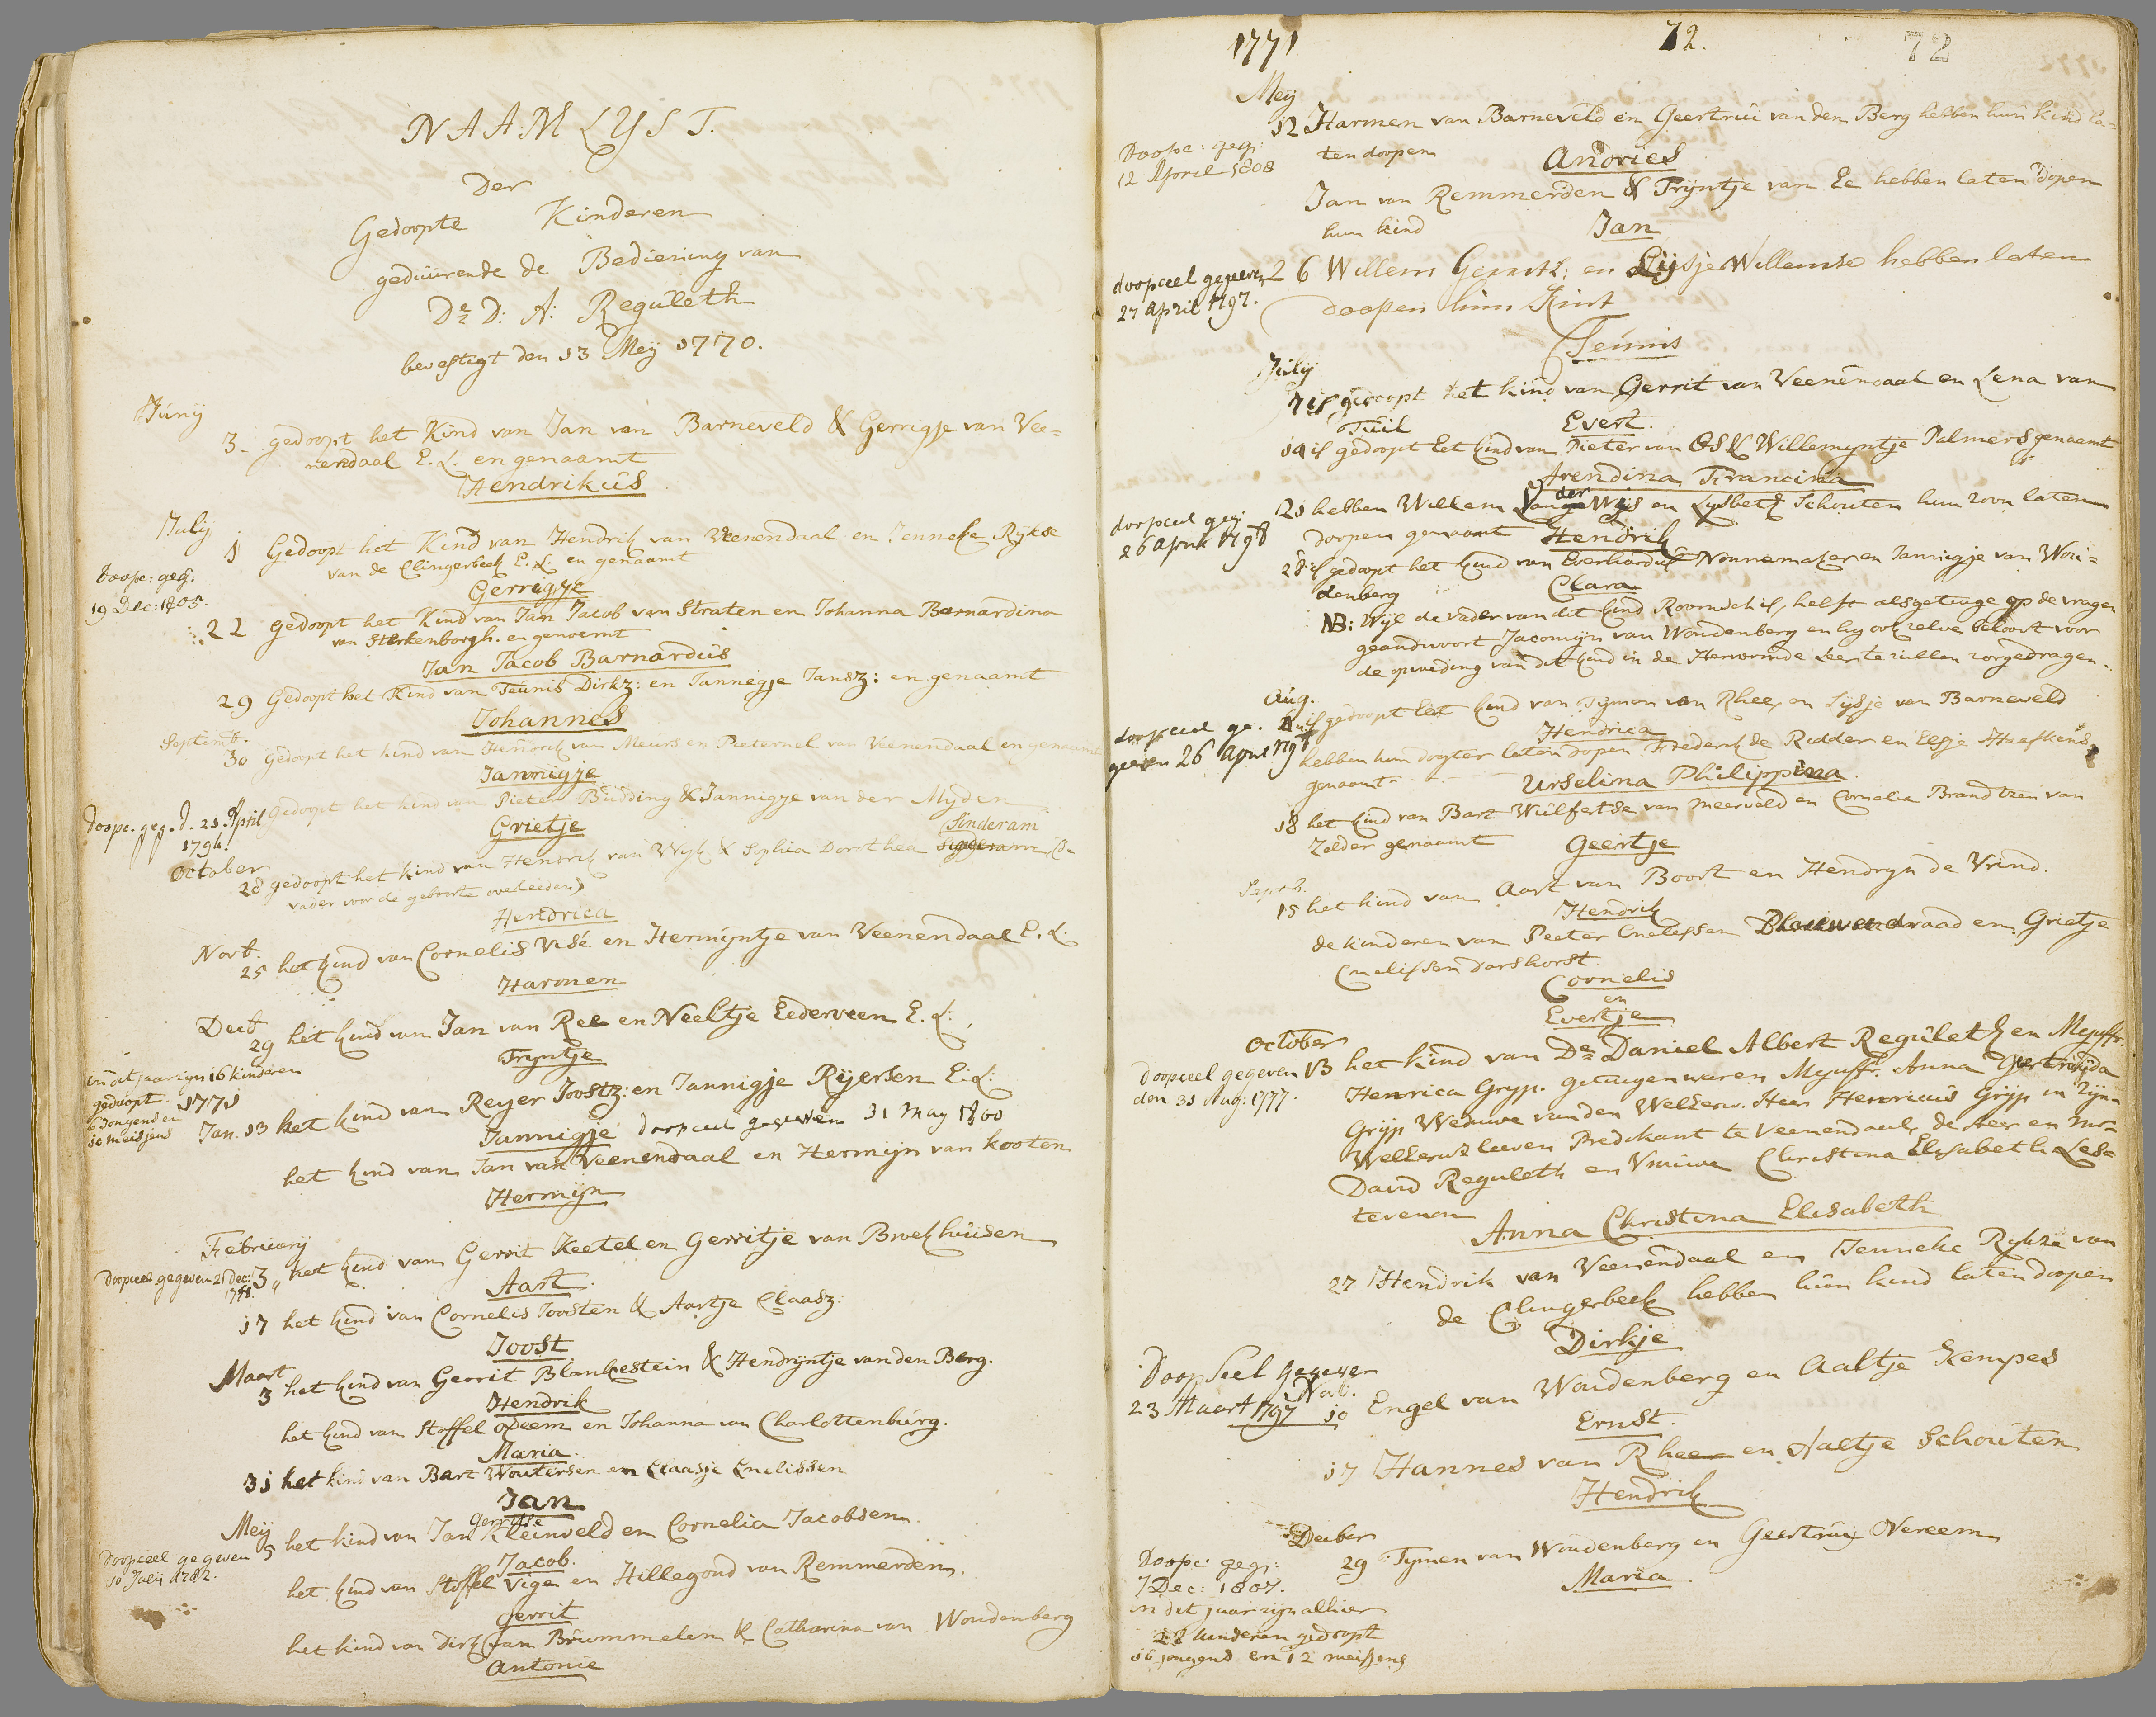 NAAMLYST.
Der
Gedoopte Kinderen
geduurende de Bediening van
Ds D: A: Reguleth
bevestigt den 13 Meij 1770.
Junij
3. gedoopt het Kind van Jan van Barneveld & Gerrigje van Vee=
nendaal E.L. en genaamt
Hendrikus
July
1 Gedoopt het Kind van Hendrik van Veenendaal en Jenneke Rykse
van de Clingerbeek E.L. en genaamt
Gerrigje
Doopc: geg:
19 Dec: 1805.
22 gedoopt het Kind van Jan Jacob van Straten en Johanna Barnardina
van Sterkenborgh. en genoemt
Jan Jacob Barnardus
29 Gedoopt het Kind van Teunis Dirkz: en Jannegje Jansz: en genaamt
Johannes
Septemb.
30 Gedoopt het kind van Hendrik van Meurs en Pieternel van Veenendaal en genaamt
Jannigje
doopc. geg. d. 21. April
1794.
Gedoopt het kind van Pieter Budding & Jannigje van der Myden
Grietje
October
28 gedoopt het kind van Hendrik van Wyk & Sophia Dorothea Sinderam (de
vader voor de geboorte overleeden)
Hendrica
Novb.
25 het kind van Cornelis Visé en Hermyntje van Veenendaal E.L.
Harmen
Decb
29 het kind van Jan van Ree en Neeltje Eederveen E.L:
Tryntje
in dit jaar zyn 16 kinderen
gedoopt
6 Jongens en
10 meisjens
1771
Jan. 13 het kind van Reyer Joostz: en Jannigje Ryersen E:L:
Jannigje doopceel gegeven 31 May 1800
het kind van Jan van Veenendaal en Hermijn van kooten
Hermijn
February
Doopceel gegeven 21 Dec:
3 het kind van Gerrit Keetel en Gerritje van Broekhuisen
Aart.
17 het kind van Cornelis Joosten & Aartje Claasz:
Joost
Maart
3 het kind van Gerrit Blankestein & Hendrijntje van den Berg.
Hendrik
het kind van Stoffel opeem en Johanna van Charlottenburg.
Maria.
31 het kind van Bart Woutersen en Claasje Cnelissen
Jan
Meij
Gerritse
5 het kind van Jan Kleinveld en Cornelia Jacobsen.
Jacob.
Doopceel gegeven
10 Julij 1782.
het kind van Stoffel Viga en Hillegond van Remmerden.
Gerrit
het kind van Dirk van Brummelen & Catharina van Woudenberg
Antonie
1771
72.
72
Meij
12 Harmen van Barneveld en Geertrui van den Berg hebben hun kind la=
ten doopen Andries
Doopc: geg:
12 April 1808
Jan van Remmerden & Tryntje van Ee hebben laten dopen
hun kind Jan
doopceel gegeven
27 April 1797.
26 Willem Gerritz: en Lijsje Willemse hebben laten
doopen hun Kint
Teunis
Julij
7 is gedoopt het kind van Gerrit van Veenendaal en Lena van
Tuil Evert.
14 is gedoopt het kind van Pieter van Os & Willemyntje Palmers genaamt
Arendina Francina
doopceel geg:
26 April 1798
21 hebben Willem van der Wijs en Lysbeth Schouten hun zoon laten
doopen genaamt Hendrik
28 is gedoopt het kind van Everhardus Nonnemaker en Jannigje van Wou=
denberg Clara
NB: Wyl de vader van dit kind Roomsch is, heeft als getuige op de vragen
geantwoort Jacomijn van Woudenberg en hy ook zelve belooft voor
de opvoeding van dit kind in de Hervormde Leer te zullen zorgedragen.
Aug.
doopceel ge.
geeven 26 April 1798
is gedoopt het kind van Tymen van Rhee, en Lysje van Barneveld
Hendrica
hebben hun dogter laten dopen Frederik de Ridder en Elsje Haafkens
genaamt Urselina Philippina.
18 het kind van Bart Wulfertse van Meerveld en Cornelia Brandtzen van
Zelder genaamt Geertje
Septb.
15 het kind van Aart van Boort en Hendryn de Vrind.
Hendrik
de kinderen van Peeter Cnelissen Blauwendraad en Grietje
Cnelissen Darshorst.
Cornelis
en
Evertje
October
Doopceel gegeven
den 31 Aug: 1777.
13 het kind van Ds Daniel Albert Reguleth en Mejuffr.
Henrica Gryp. getuigen waren Mejuffr. Anna Geertruida
Gryp Weduwe van den WelEerw. Heer Henricus Gryp in Zyn
WelEerwz leeven Predikant te Veenendaal, de Heer en Mr
David Reguleth en Vrouwe Christina Elisabeth Les=
tevenon
Anna Christina Elisabeth
27 Hendrik van Veenendaal en Jenneke Rykze van
de Clingerbeek hebben hun kind laten doopen
Dirkje
Doop Seel Gegeven
23 Maart 1797
Nov.
10 Engel van Woudenberg en Aaltje Kempes
Ernst.
17 Hannes van Rhee en Aaltje Schouten
Hendrik
December
29 Tymen van Woudenberg en Geertruy Nereem
Maria.
Doopc: geg:
7 Dec: 1807.
in dit jaar zyn alhier
28 kinderen gedoopt
16 jongens en 12 meisjens